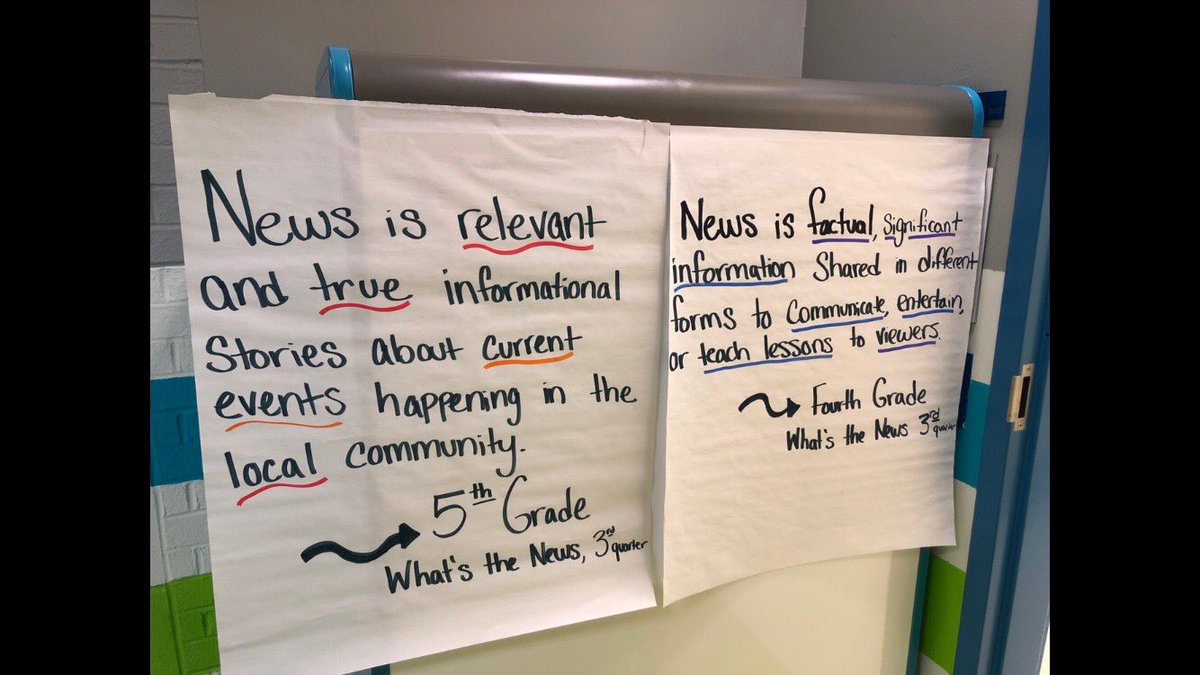 News is relevant
and true informational
Stories about current
events happening in the
local community.
5th Grade
What's the News, 3rd quarter
News is factual, significant
information Shared in different
forms to communicate, entertain,
or teach lessons to viewers.
Fourth Grade
What's the News 3rd quarter